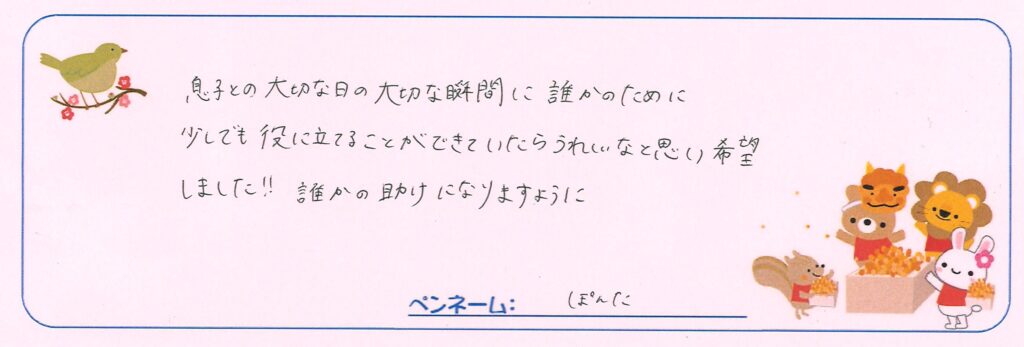 息子との大切な日の大切な瞬間に 誰かのために
少しでも役に立てることができていたらうれしいなと思い希望
しました!! 誰かの助けになりますように
ペンネーム: ぽんた